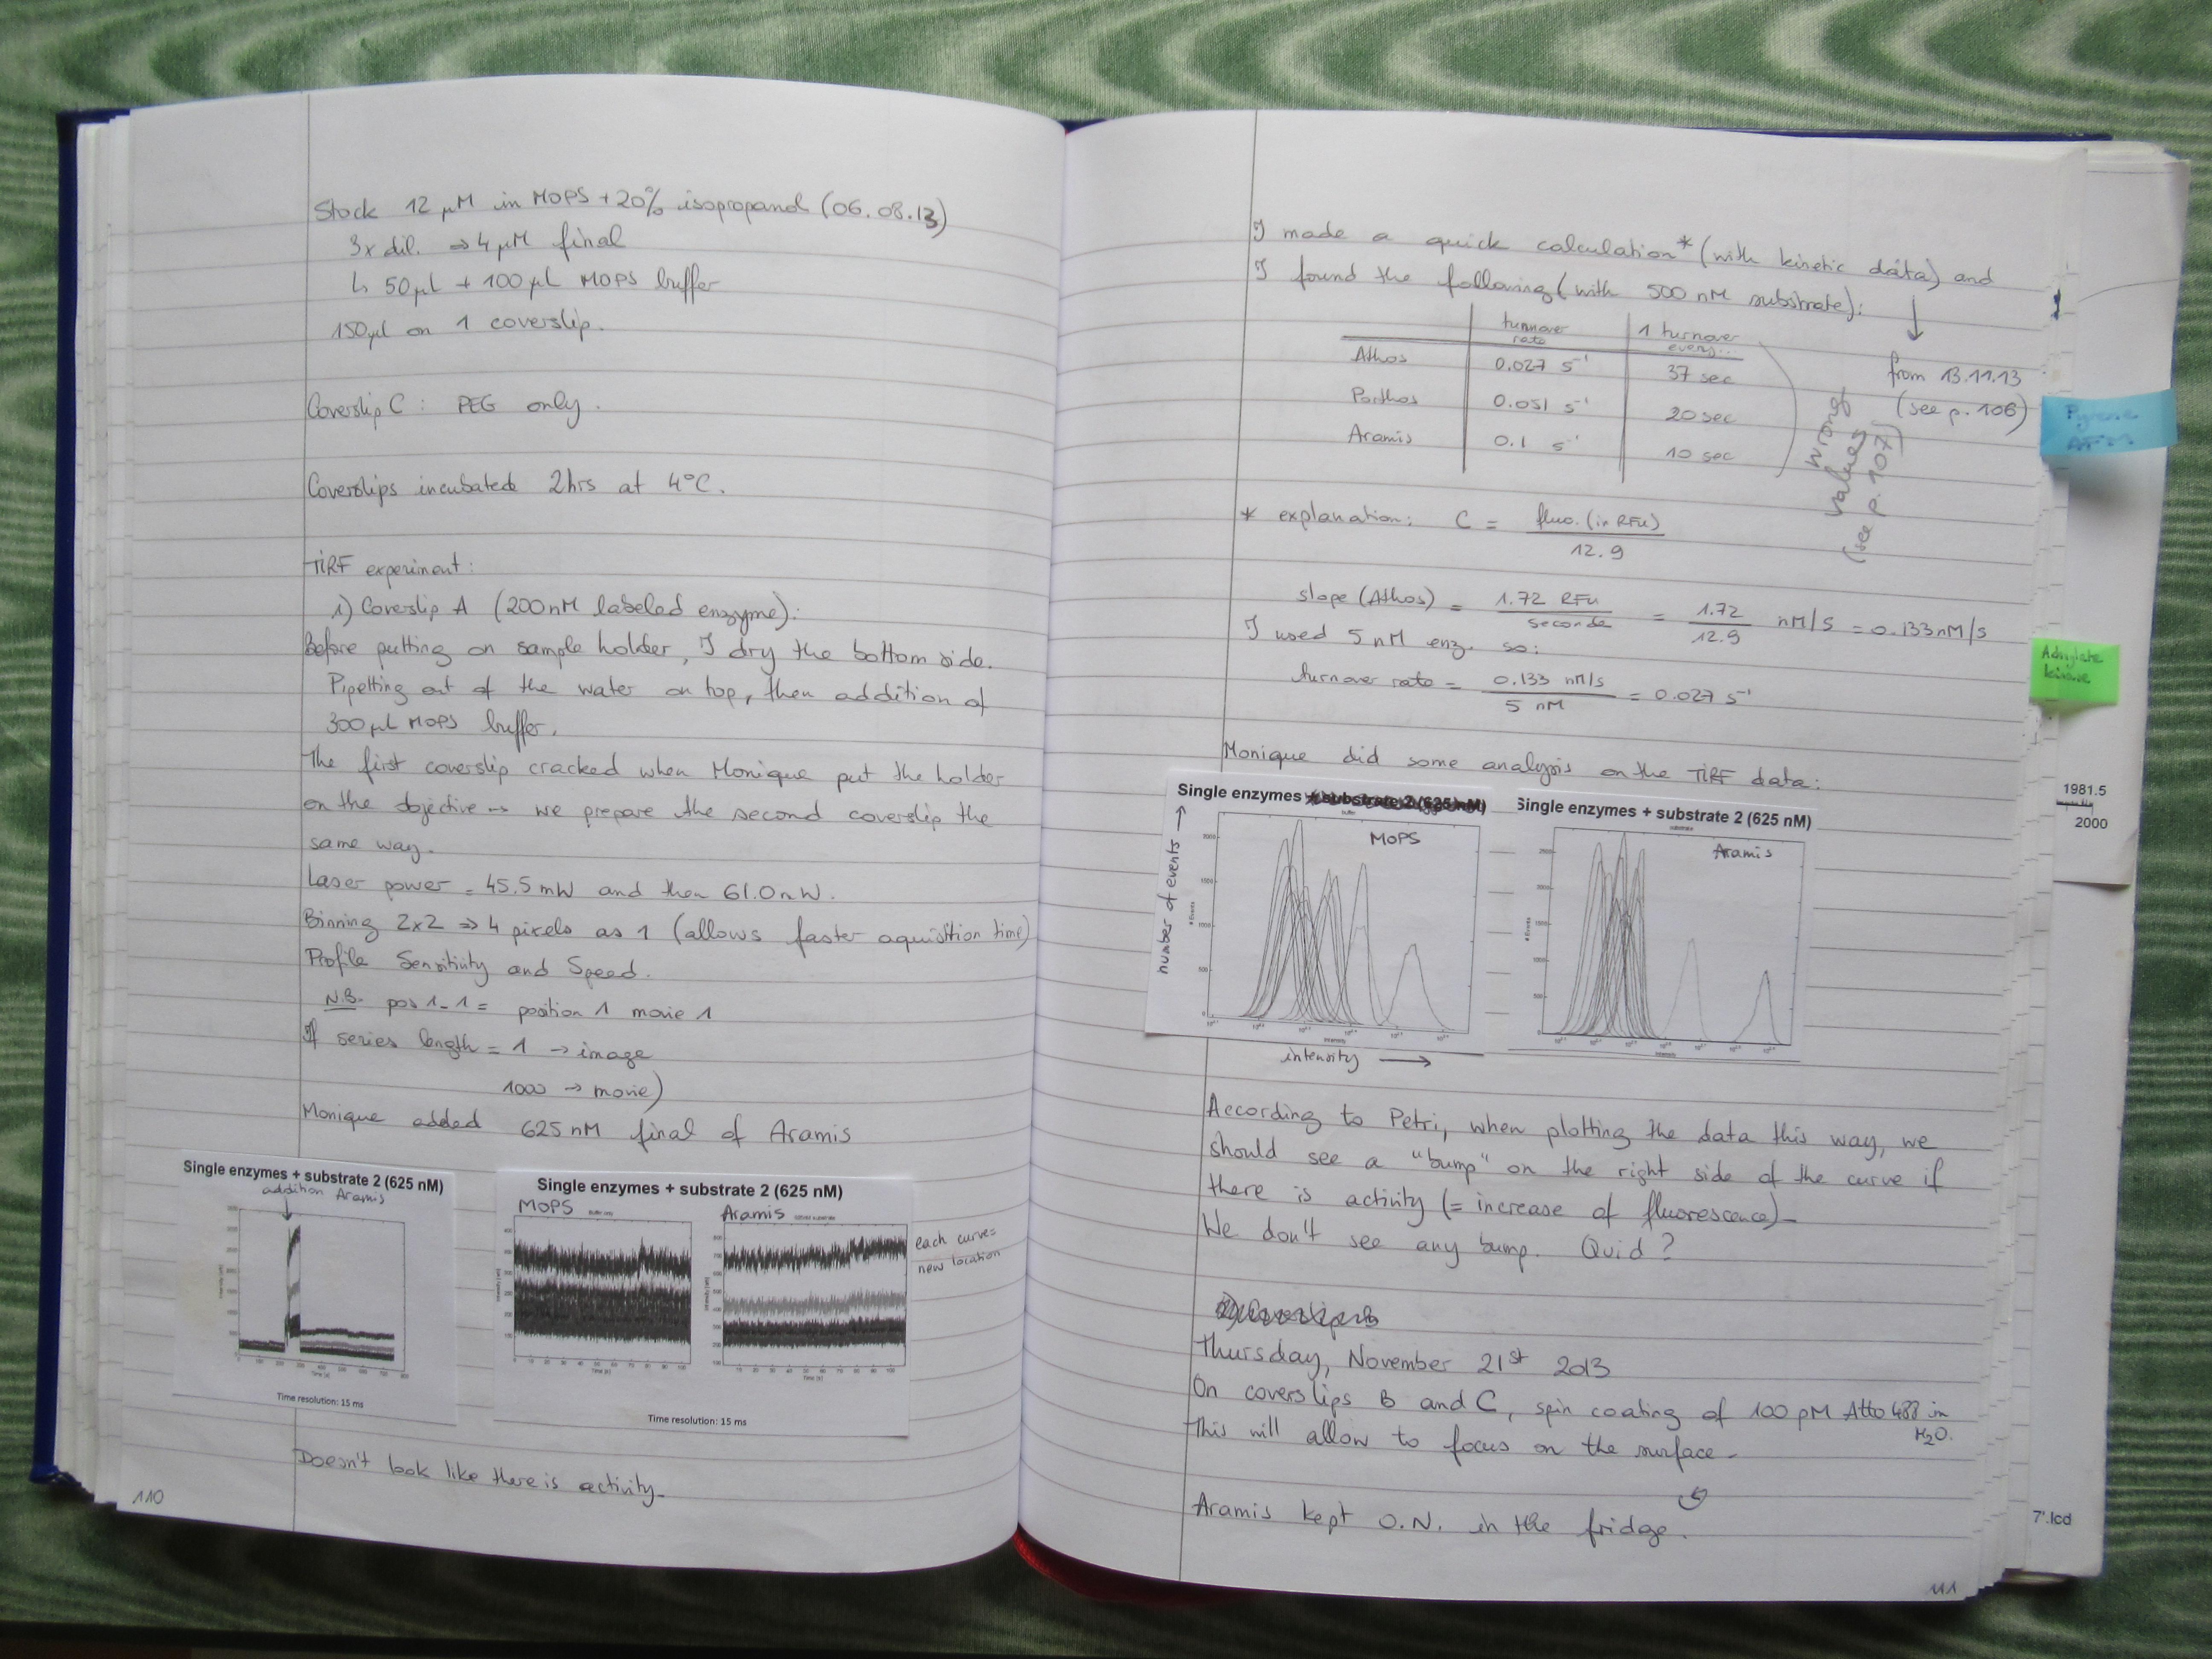 Stock 12 µM in MOPS + 20% isopropanol (06.08.13)
3x dil. ⇒ 4 µM final
↳ 50µL + 100µL MOPS buffer
150µl on 1 coverslip.
Coverslip C : PEG only.
Coverslips incubated 2hrs at 4°C.
TIRF experiment :
1) Coverslip A (200nM labeled enzyme):
Before putting on sample holder, I dry the bottom side.
Pipetting out of the water on top, then addition of
300µL MOPS buffer.
The first coverslip cracked when Monique put the holder
on the objective → we prepare the second coverslip the
same way.
Laser power = 45.5mW and then 61.0mW.
Binning 2x2 ⇒ 4 pixels as 1 (allows faster aquisition time)
Profile Sensitivity and Speed.
N.B. pos 1-1 = position 1 movie 1
If series length = 1 → image
1000 → movie)
Monique added 625nM final of Aramis
Single enzymes + substrate 2 (625 nM)
addition Aramis
Time resolution: 15 ms
Single enzymes + substrate 2 (625 nM)
MOPS
Buffer only
Aramis
Time [s]
Time [s]
Time resolution: 15 ms
each curve=
new location
Doesn't look like there is activity.
110
I made a quick calculation* (with kinetic data) and
I found the following (with 500 nM substrate):
turnover rate 1 turnover every...
Athos 0.027 s⁻¹ 37 sec
Porthos 0.051 s⁻¹ 20 sec
Aramis 0.1 s⁻¹ 10 sec
wrong
values
(see p. 107)
↓
from 13.11.13
(see p. 106)
* explanation: C = fluo. (in RFU) / 12.9
slope (Athos) = 1.72 RFU / seconde = 1.72 / 12.9 nM/s = 0.133nM/s
I used 5 nM enz. so:
turnover rate = 0.133 nM/s / 5 nM = 0.027 s⁻¹
Monique did some analysis on the TIRF data:
Single enzymes + substrate 2 (625 nM)
MOPS
number of events →
intensity →
Single enzymes + substrate 2 (625 nM)
Aramis
According to Petri, when plotting the data this way, we
should see a "bump" on the right side of the curve if
there is activity (= increase of fluorescence).
We don't see any bump. Quid ?
Thursday, November 21st 2013
On coverslips B and C, spin coating of 100 pM Atto 488 in
H₂O.
This will allow to focus on the surface.
Aramis kept O.N. in the fridge.
111
Pyrene
AFM
Adenylate
kinase
1981.5
2000
7'.lcd